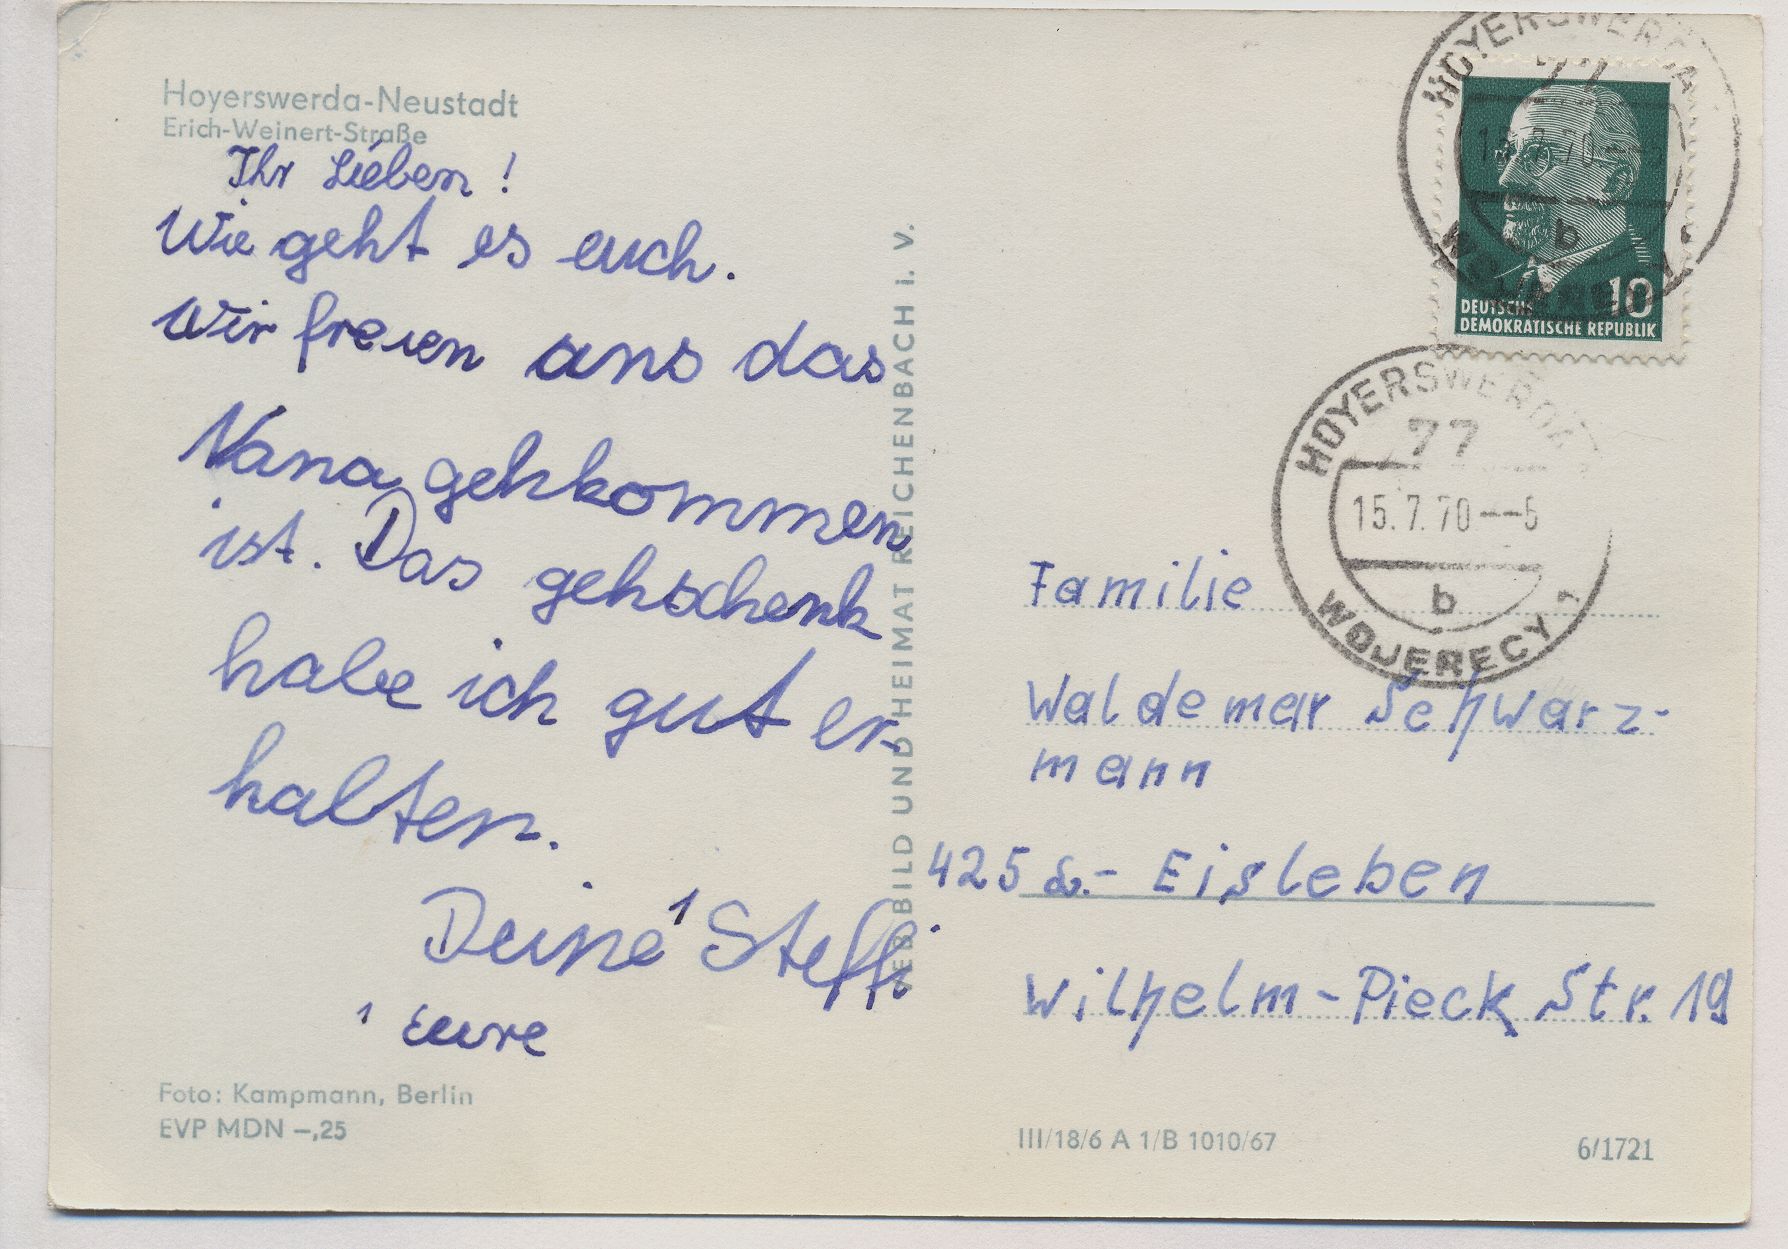 Hoyerswerda-Neustadt
Erich-Weinert-Straße
Ihr Lieben!
Wie geht es euch.
Wir freuen uns das
Nana gehkommen
ist. Das gehschenk
habe ich gut er-
halten.
Deine ¹ Steffi
¹ eure
Foto: Kampmann, Berlin
EVP MDN –,25
VEB BILD UND HEIMAT REICHENBACH i. V.
HOYERSWERDA
77
15.7.70--
b
DEUTSCHE
DEMOKRATISCHE REPUBLIK
10
HOYERSWERDA
77
15.7.70--6
b
WOJERECY 1
Familie
Waldemar Schwarz-
mann
425 L.- Eisleben
Wilhelm-Pieck Str. 19
III/18/6 A 1/B 1010/67
6/1721